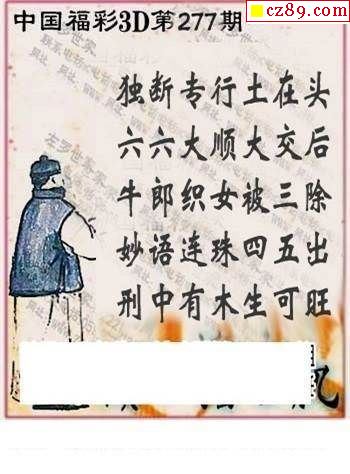 cz89.com
中国福彩3D第277期
独断专行土在头
六六大顺大交后
牛郎织女被三除
妙语连珠四五出
刑中有木生可旺